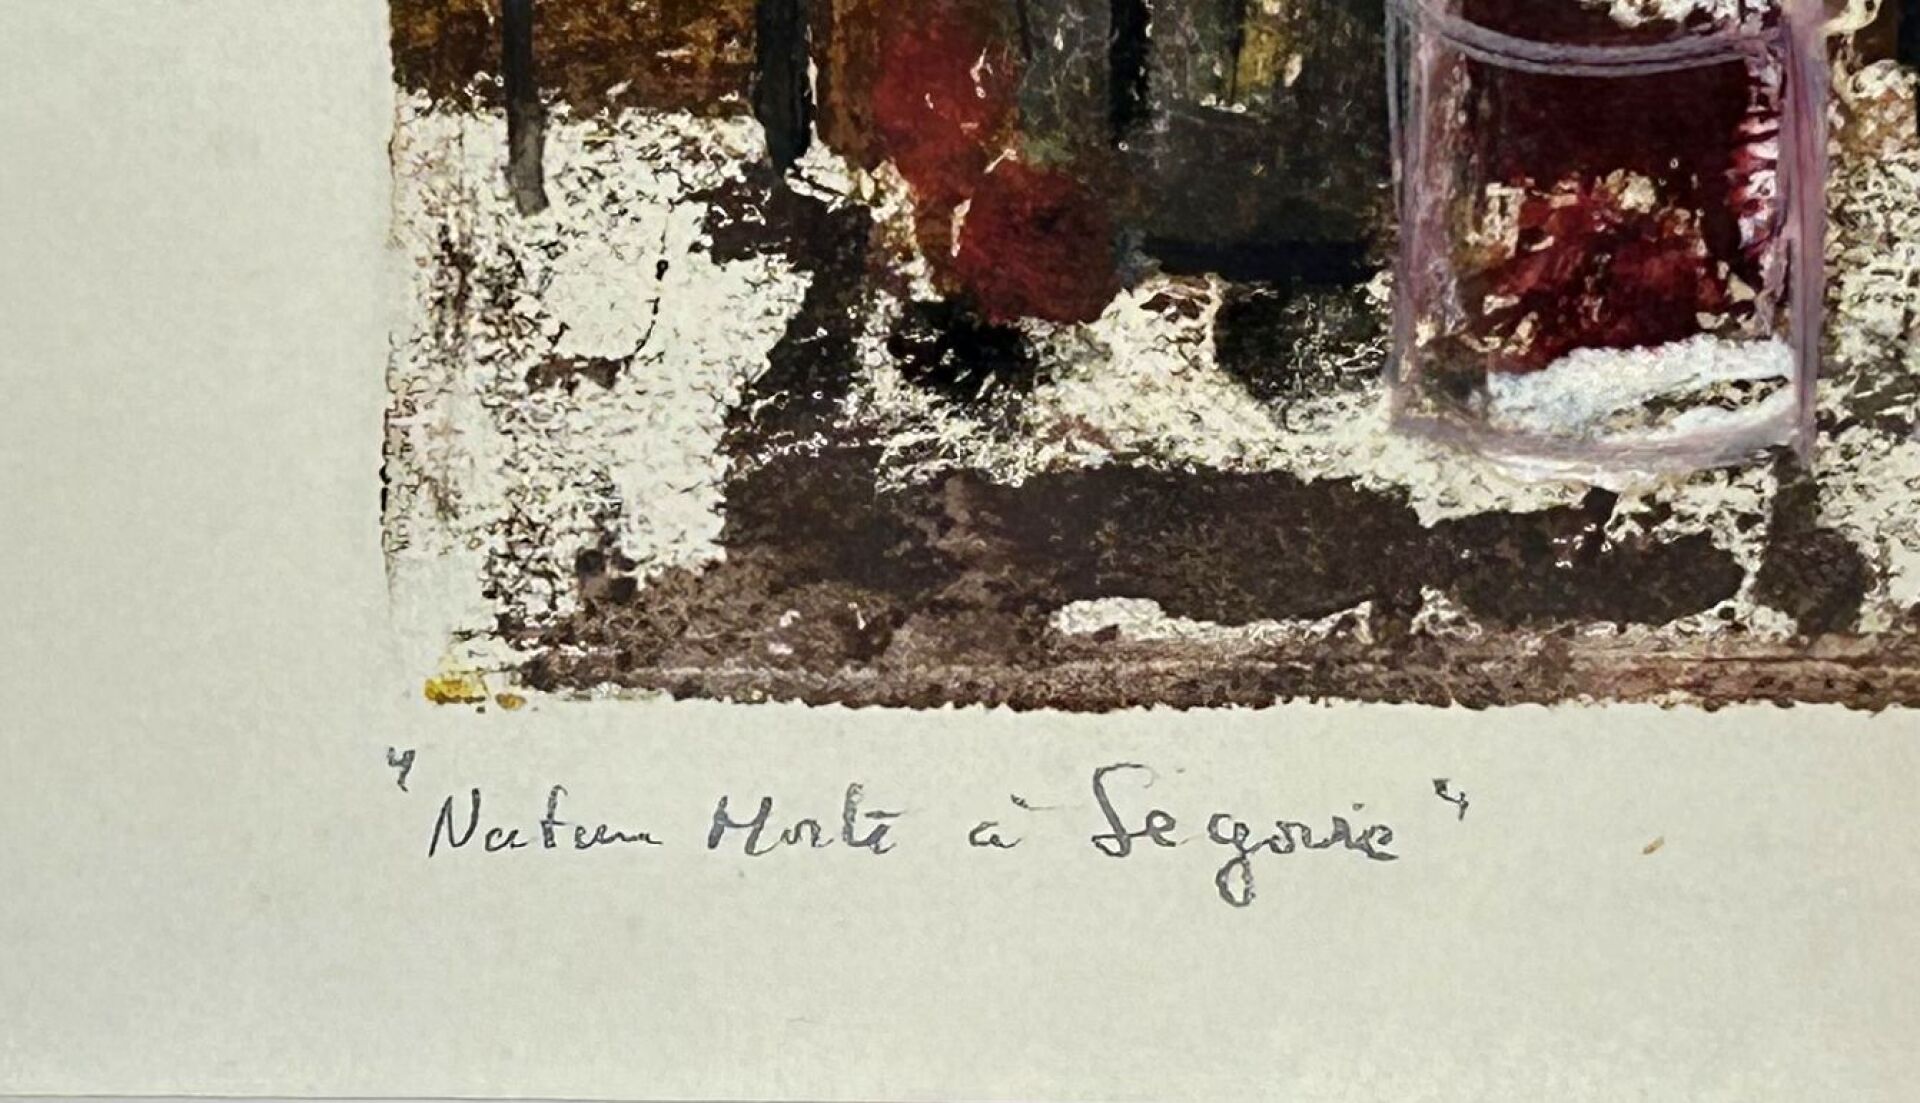 "Nature Morte à Segovie"